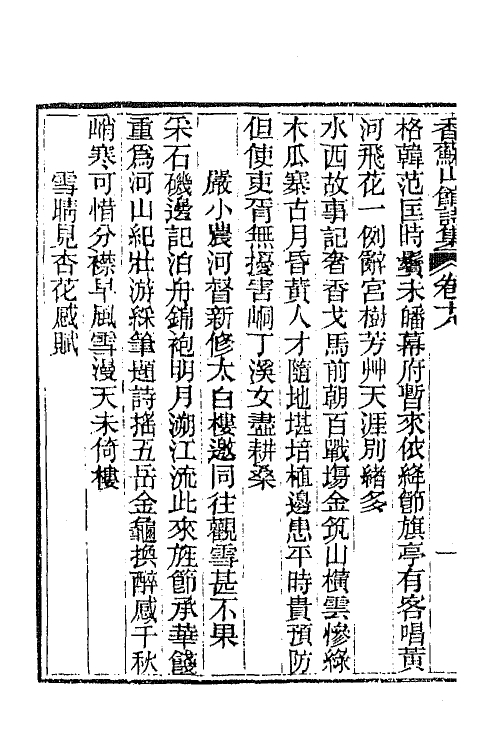 香蘇山館詩集 卷十八 一
格韓范匡時鬢未皤幕府暫來依絳節旗亭有客唱黃
河飛花一例辭宮樹芳艸天涯別緒多
水西故事記奢香戈馬前朝百戰場金筑山橫雲慘綠
木瓜寨古月昏黃人才隨地堪培植邊患平時貴預防
但使吏胥無擾害峒丁溪女盡耕桑
嚴小農河督新修太白樓邀同往觀雪甚不果
采石磯邊記泊舟錦袍明月溯江流此來旌節承華餞
重爲河山紀壯游綵筆題詩搖五岳金龜換醉感千秋
峭寒可惜分襟早風雪漫天未倚樓
雪晴見杏花感賦